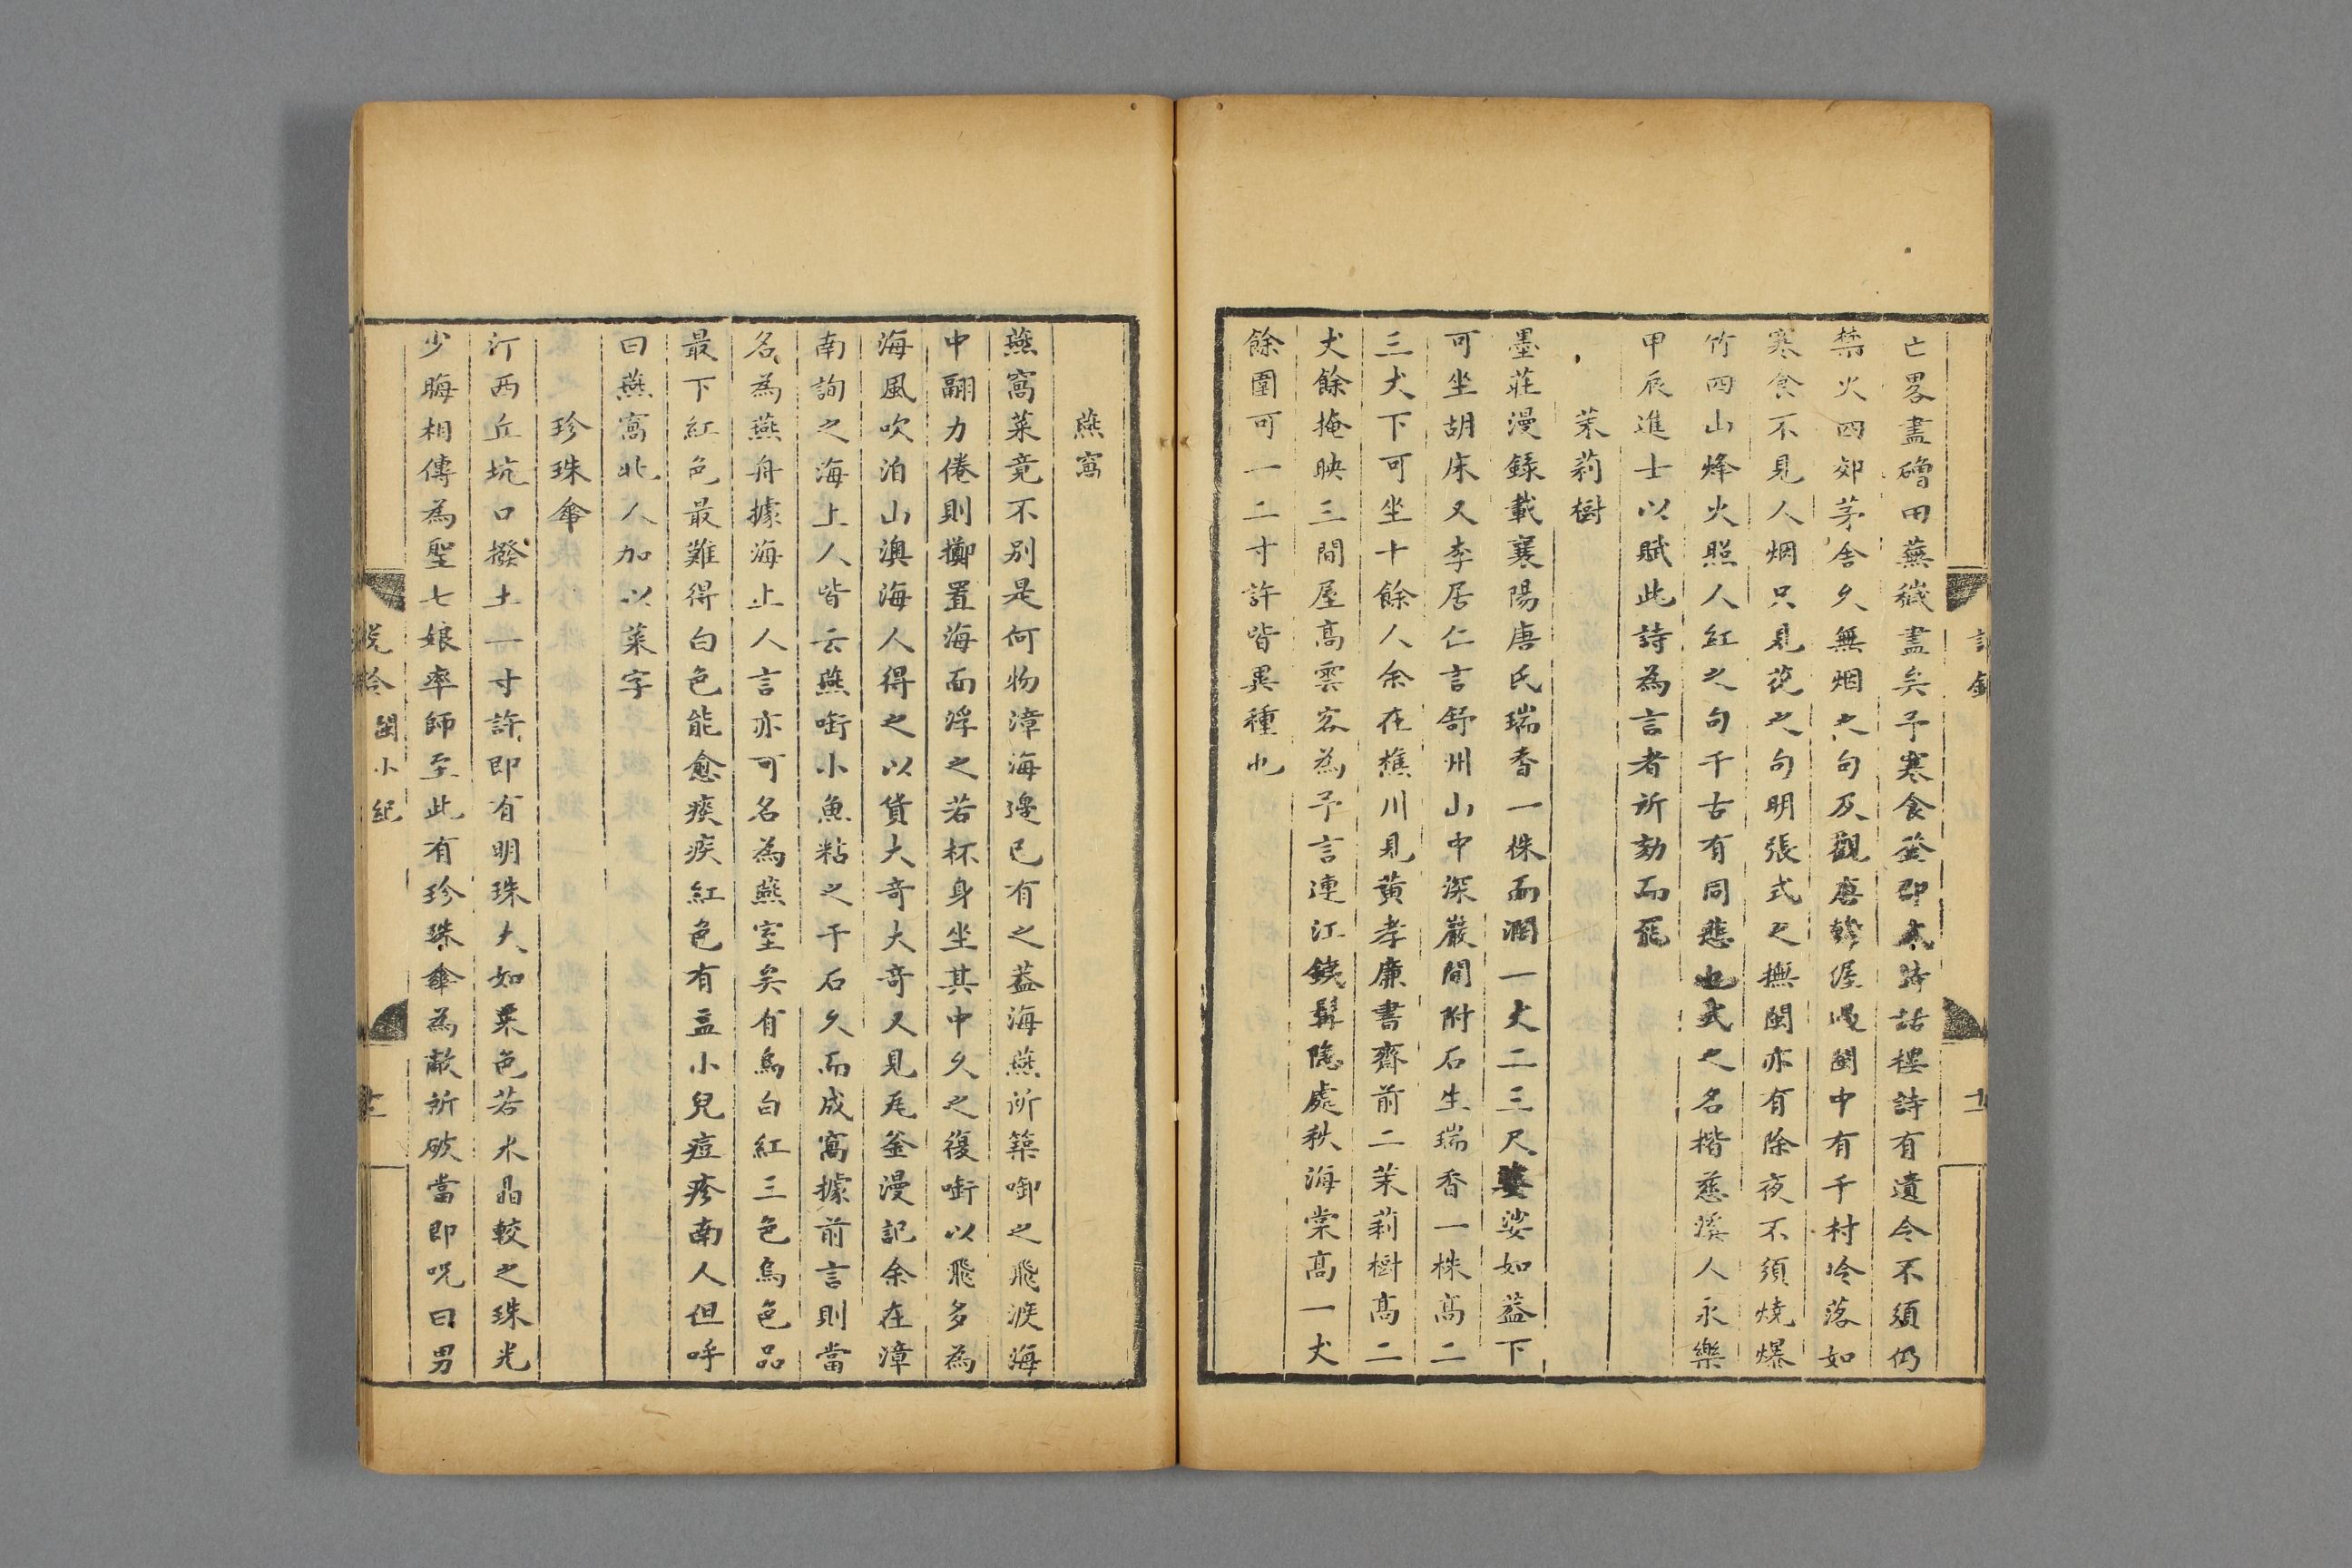 亡畧盡磳田蕪穢盡矣予寒食登邵太詩話樓詩有遺令不須仍
禁火四郊茅舍久無烟之句及觀唐韓偓過閩中有千村冷落如
寒食不見人烟只見花之句明張式之撫閩亦有除夜不須燒爆
竹四山烽火照人紅之句千古有同悲也式之名楷慈溪人永樂
甲辰進士以賦此詩為言者所劾而罷
茉莉樹
墨莊漫錄載襄陽唐氏瑞香一株面濶一丈二三尺婆娑如葢下
可坐胡床又李居仁言舒州山中深巖間附石生瑞香一株高二
三丈下可坐十餘人余在樵川見黃孝廉書齋前二茉莉樹高二
丈餘掩映三間屋高雲客為予言連江錢髯隠處秋海棠高一丈
餘圍可一二寸許皆異種也
燕窩
燕窩菜竟不别是何物漳海邊已有之葢海燕所築啣之飛渡海
中翮力倦則擲置海面浮之若杯身坐其中久之復啣以飛多為
海風吹泊山澳海人得之以貨大奇大奇又見尾釜漫記余在漳
南詢之海上人皆云燕啣小魚粘之于石久而成窩據前言則當
名為燕舟據海上人言亦可名為燕室矣有烏白紅三色烏色品
最下紅色最難得白色能愈痰疾紅色有益小兒痘疹南人但呼
曰燕窩北人加以菜字
珍珠傘
汀西丘坑口撥土一寸許即有明珠大如粟色若水晶較之珠光
少晦相傳為聖七娘率師至此有珍珠傘為敵所破當即呪曰男
説鈴
閩小紀